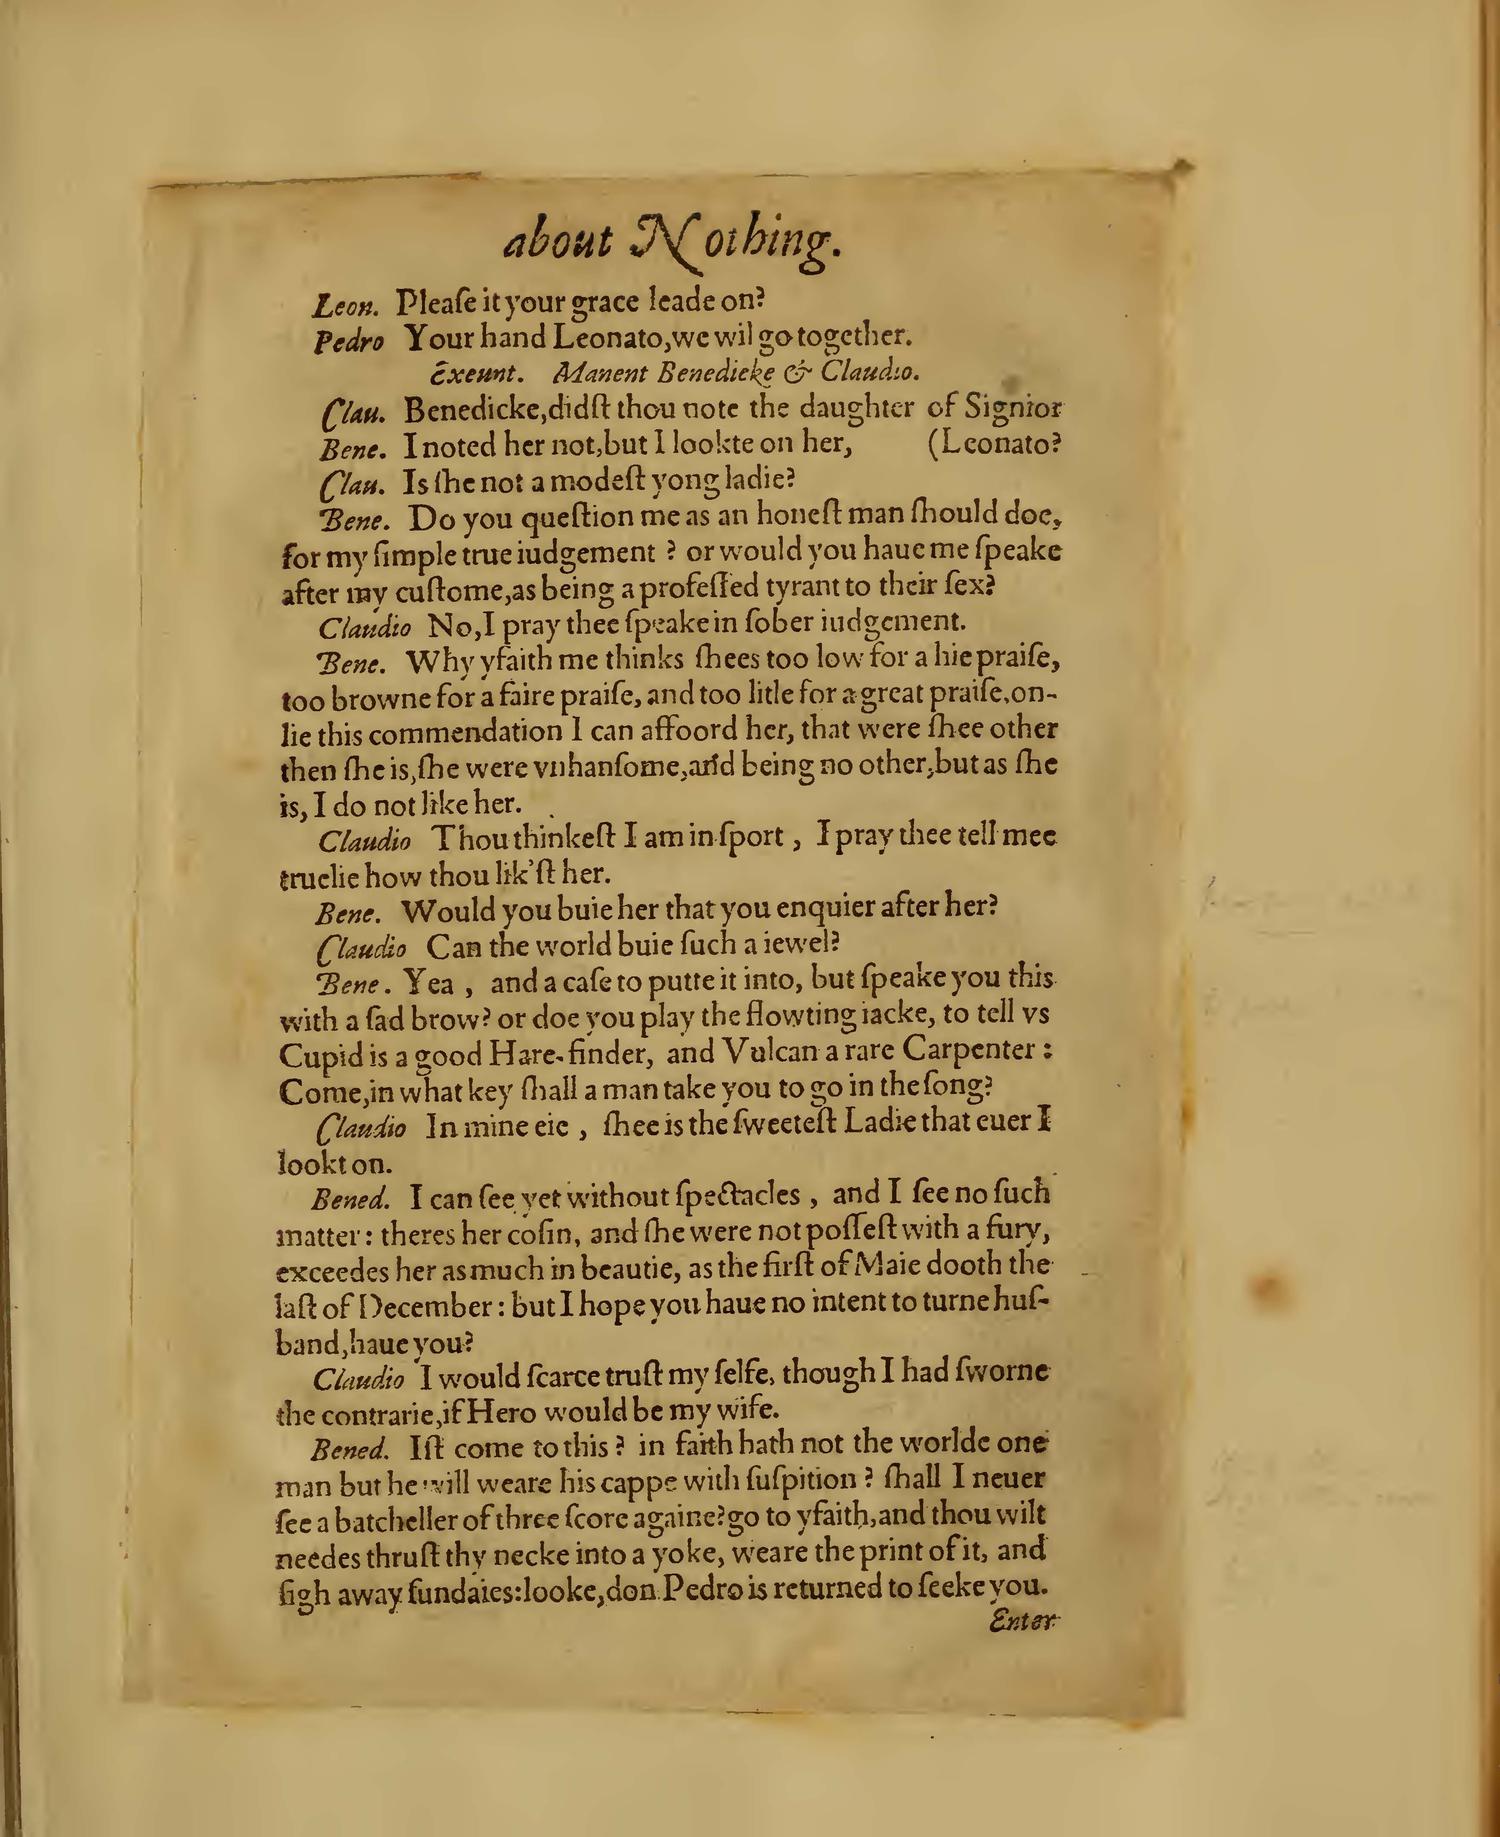 about Nothing.
Leon. Pleaſe it your grace leade on?
Pedro Your hand Leonato,we wil go together.
Exeunt. Manent Benedicke & Claudio.
Clau. Benedicke,didſt thou note the daughter of Signior
Bene. I noted her not,but I lookte on her, (Leonato?
Clau. Is ſhe not a modeſt yong ladie?
Bene. Do you queſtion me as an honeſt man ſhould doe,
for my ſimple true iudgement ? or would you haue me ſpeake
after my cuſtome,as being a profeſſed tyrant to their ſex?
Claudio No,I pray thee ſpeake in ſober iudgement.
Bene. Why yfaith me thinks ſhees too low for a hie praiſe,
too browne for a faire praiſe, and too litle for a great praiſe,on-
lie this commendation I can affoord her, that were ſhee other
then ſhe is,ſhe were vnhanſome,and being no other,but as ſhe
is, I do not like her.
Claudio Thou thinkeſt I am in ſport , I pray thee tell mee
truelie how thou lik'ſt her.
Bene. Would you buie her that you enquier after her?
Claudio Can the world buie ſuch a iewel?
Bene. Yea , and a caſe to putte it into, but ſpeake you this
with a ſad brow? or doe you play the flowting iacke, to tell vs
Cupid is a good Hare-finder, and Vulcan a rare Carpenter :
Come,in what key ſhall a man take you to go in the ſong?
Claudio In mine eie , ſhee is the ſweeteſt Ladie that euer I
lookt on.
Bened. I can ſee yet without ſpectacles , and I ſee no ſuch
matter : theres her coſin, and ſhe were not poſſeſt with a fury,
exceedes her as much in beautie, as the firſt of Maie dooth the
laſt of December : but I hope you haue no intent to turne huſ-
band,haue you?
Claudio I would ſcarce truſt my ſelfe, though I had ſworne
the contrarie,if Hero would be my wife.
Bened. Iſt come to this ? in faith hath not the worlde one
man but he will weare his cappe with ſuſpition ? ſhall I neuer
ſee a batcheller of three ſcore againe?go to yfaith,and thou wilt
needes thruſt thy necke into a yoke, weare the print of it, and
ſigh away ſundaies:looke,don Pedro is returned to ſeeke you.
Enter